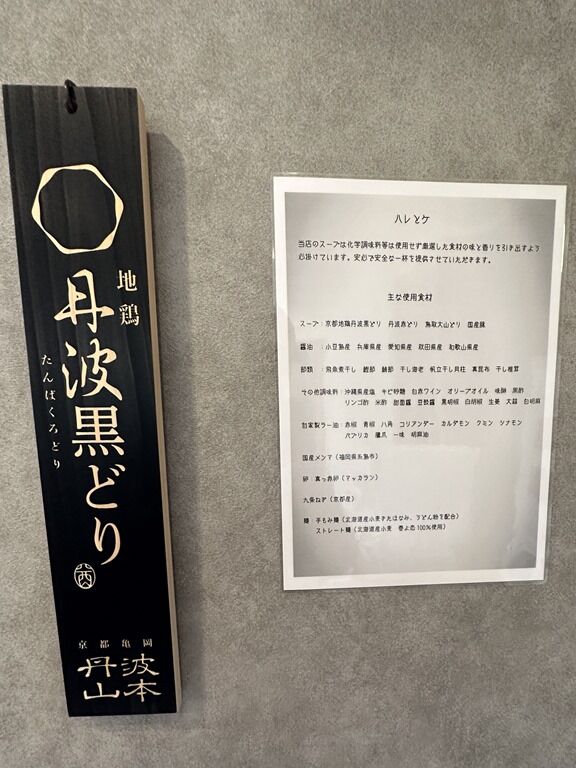 地鶏
丹波黒どり
たんばくろどり
京都亀岡
丹波
山本
ハレとケ
当店のスープは化学調味料等は使用せず厳選した食材の味と香りを引き出すよう
心掛けています。安心で安全な一杯を提供させていただきます。
主な使用食材
スープ:京都地鶏丹波黒どり 丹波赤どり 鳥取大山どり 国産豚
醤油 :小豆島産 兵庫県産 愛知県産 秋田県産 和歌山県産
節類 :飛魚煮干し 鰹節 鯖節 干し海老 帆立干し貝柱 真昆布 干し椎茸
その他調味料 沖縄県産塩 キビ砂糖 白赤ワイン オリーブオイル 味醂 黒酢
リンゴ酢 米酢 甜面醤 豆鼓醤 黒胡椒 白胡椒 生姜 大蒜 白胡麻
自家製ラー油 赤椒 青椒 八角 コリアンダー カルダモン クミン シナモン
パプリカ 鷹爪 一味 胡麻油
国産メンマ(福岡県糸島市)
卵:真っ赤卵(マッカラン)
九条ねぎ(京都産)
麺:手もみ麺(北海道産小麦きたほなみ、うどん粉を配合)
ストレート麺(北海道産小麦 春よ恋100%使用)